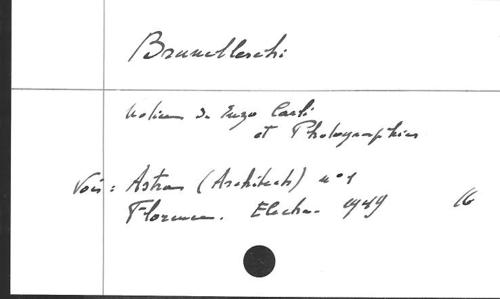 Brunelleschi
Notices de Enzo Carli
et Photographies
Voir : Astra (Architects) n° 1
Florence. Electa. 1949 16